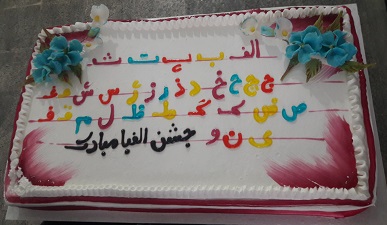 الف ب پ ت ث
ج چ ح خ د ذ ر ز ژ س ش ع غ
ص ض ک گ ط ظ ل م ف ق
ی ن و جشن الفبا مبارک